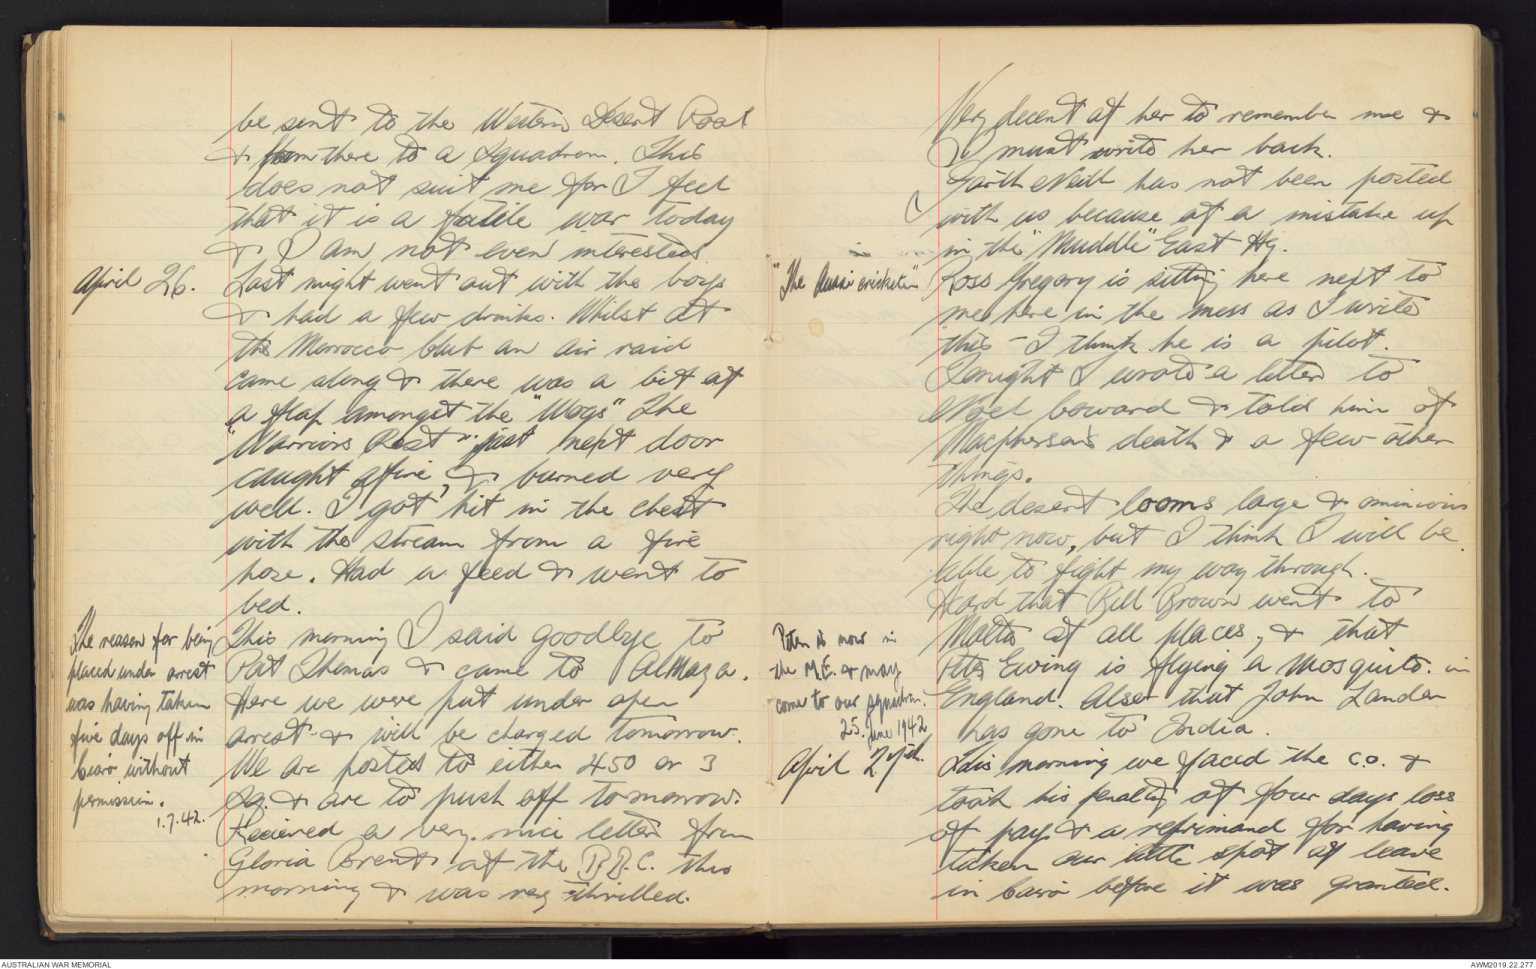 be sent to the Western Desert Pool
& from there to a squadron. This
does not suit me for I feel
that it is a futile war today
& I am not even interested.
April 26.
Last night went out with the boys
& had a few drinks. Whilst at
the Morrocco club an air raid
came along & there was a bit of
a flap amongst the "Wogs" The
"Warriors Rest" just next door
caught afire, & burned very
well. I got hit in the chest
with the stream from a fire
hose. Had a feed & went to
bed.
The reason for being
placed under arrest
was having taken
five days off in
Cairo without
permission.
1.7.42.
This morning I said goodbye to
Pat Thomas & came to Almaza.
Here we were put under open
arrest & will be charged tomorrow.
We are posted to either 450 or 3
Sq. & are to push off tomorrow.
Recieved a very nice letter from
Gloria Brent of the B.B.C. this
morning & was very thrilled.
Very decent of her to remember me &
I must write her back.
Garth Neill has not been posted
with us because of a mistake up
in the "Muddle" East Hq.
"The Aussi cricketer"
Ross Gregory is sitting here next to
me here in the mess as I write
this - I think he is a pilot.
Tonight I wrote a letter to
Noel Coward & told him of
Macpherson's death & a few other
things.
The desert looms large & ominious
right now, but I think I will be
able to fight my way through.
Heard that Bill Brown went to
Malta of all places, & that
Peter Ewing is flying a Mosquito in
England. Also that John Lander
has gone to India.
Peter is now in
the M.E. & may
come to our squadron.
25. June 1942
April 27th.
This morning we faced the C.O. &
took his penalty of four days loss
of pay & a reprimand for having
taken our little spot of leave
in Cairo before it was granted.
AUSTRALIAN WAR MEMORIAL
AWM2019.22.277